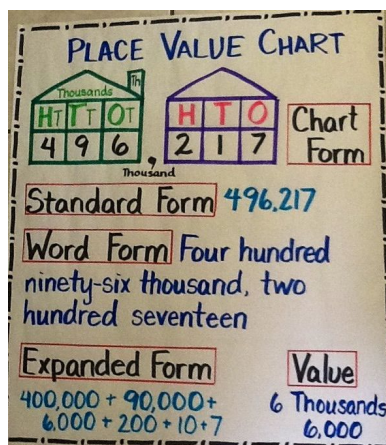 PLACE VALUE CHART
Thousands Th
HT TT OT H T O
4 9 6 , 2 1 7
Thousand
Chart
Form
Standard Form 496,217
Word Form Four hundred
ninety-six thousand, two
hundred seventeen
Expanded Form
400,000 + 90,000 +
6,000 + 200 + 10 + 7
Value
6 Thousands
6,000